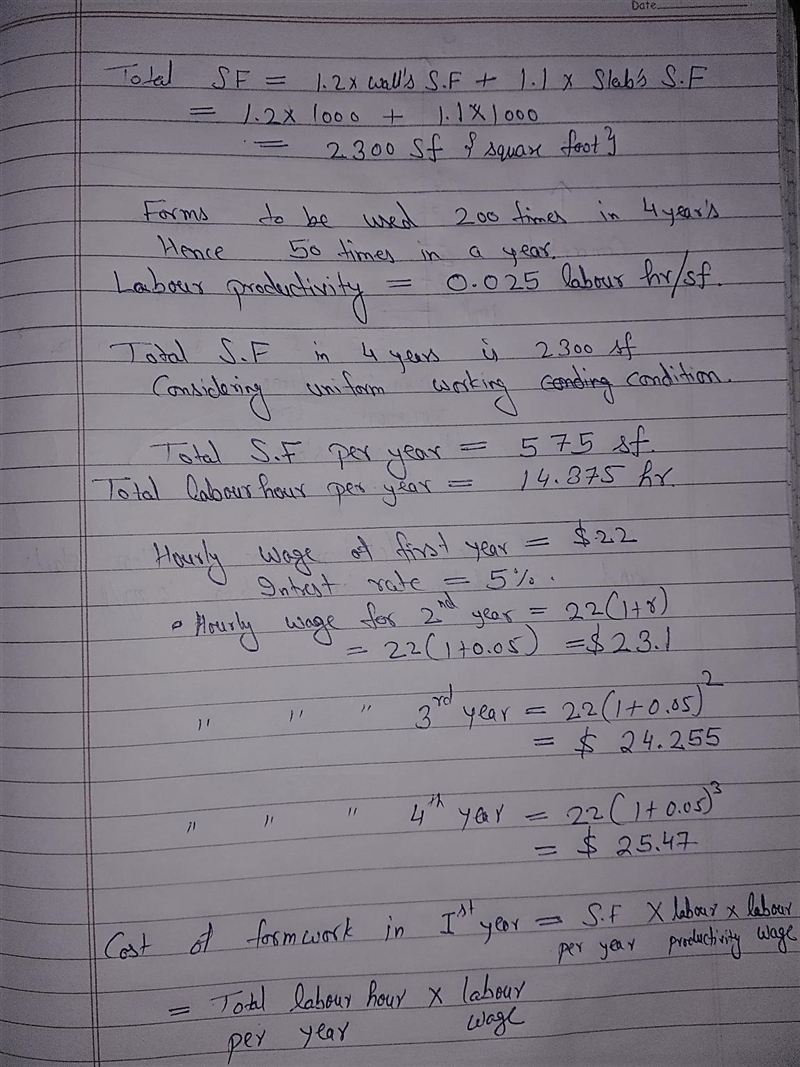 Date
Total SF = 1.2x wall's S.F + 1.1 x Slab's S.F
= 1.2x 1000 + 1.1x1000
= 2300 Sf { square foot }
Forms to be used 200 times in 4 year's
Hence 50 times in a year.
Labour productivity = 0.025 labour hr/sf.
Total S.F in 4 years is 2300 sf
Considering uniform working conding condition.
Total S.F per year = 575 sf.
Total labour hour per year = 14.375 hr.
Hourly wage of first year = $22
Intrest rate = 5%.
• Hourly wage for 2nd year = 22(1+r)
= 22(1+0.05) = $23.1
" " " 3rd year = 22(1+0.05)²
= $ 24.255
" " " 4th year = 22(1+0.05)³
= $ 25.47
Cost of formwork in Ist year = S.F X labour x labour
per year productivity wage
= Total labour hour x labour
per year wage